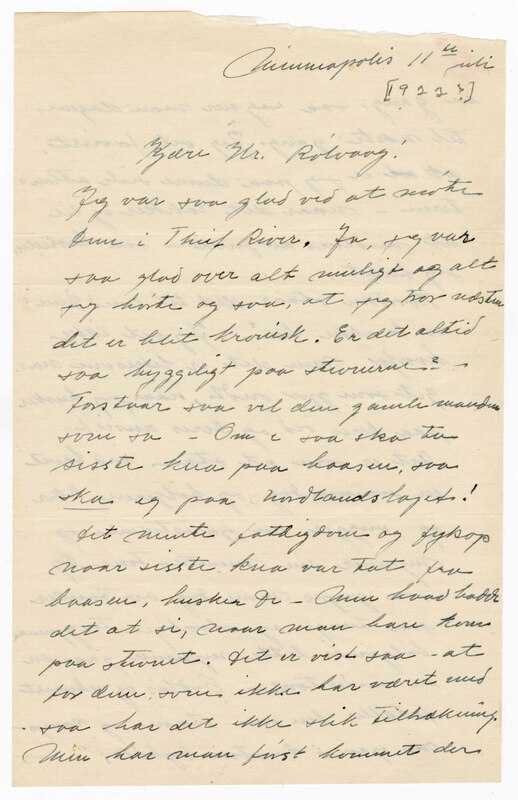 Minneapolis 11te juli
[1922?]
Kjære Hr. Rölvaag!
Jeg var saa glad ved at møte
Dem i Thief River. Ja, jeg var
saa glad over alt muligt og alt
jeg hørte og saa, at jeg tror næsten
det er blit kronisk. Er det altid
saa hyggeligt paa stevnerne? -
Forstaar saa vel den gamle manden
som sa - Om e saa ska ta
sisste kua paa baasen, saa
ska eg paa Nordlandslaget!
Det mente fattigdom og
naar sisste kua var tat fra
baasen, husker De - Men hvad hadde
det at si, naar man bare kom
paa stevnet. Det er vist saa - at
for dem, som ikke har været med
saa har det ikke slik tiltrækning.
Men har man først kommet der